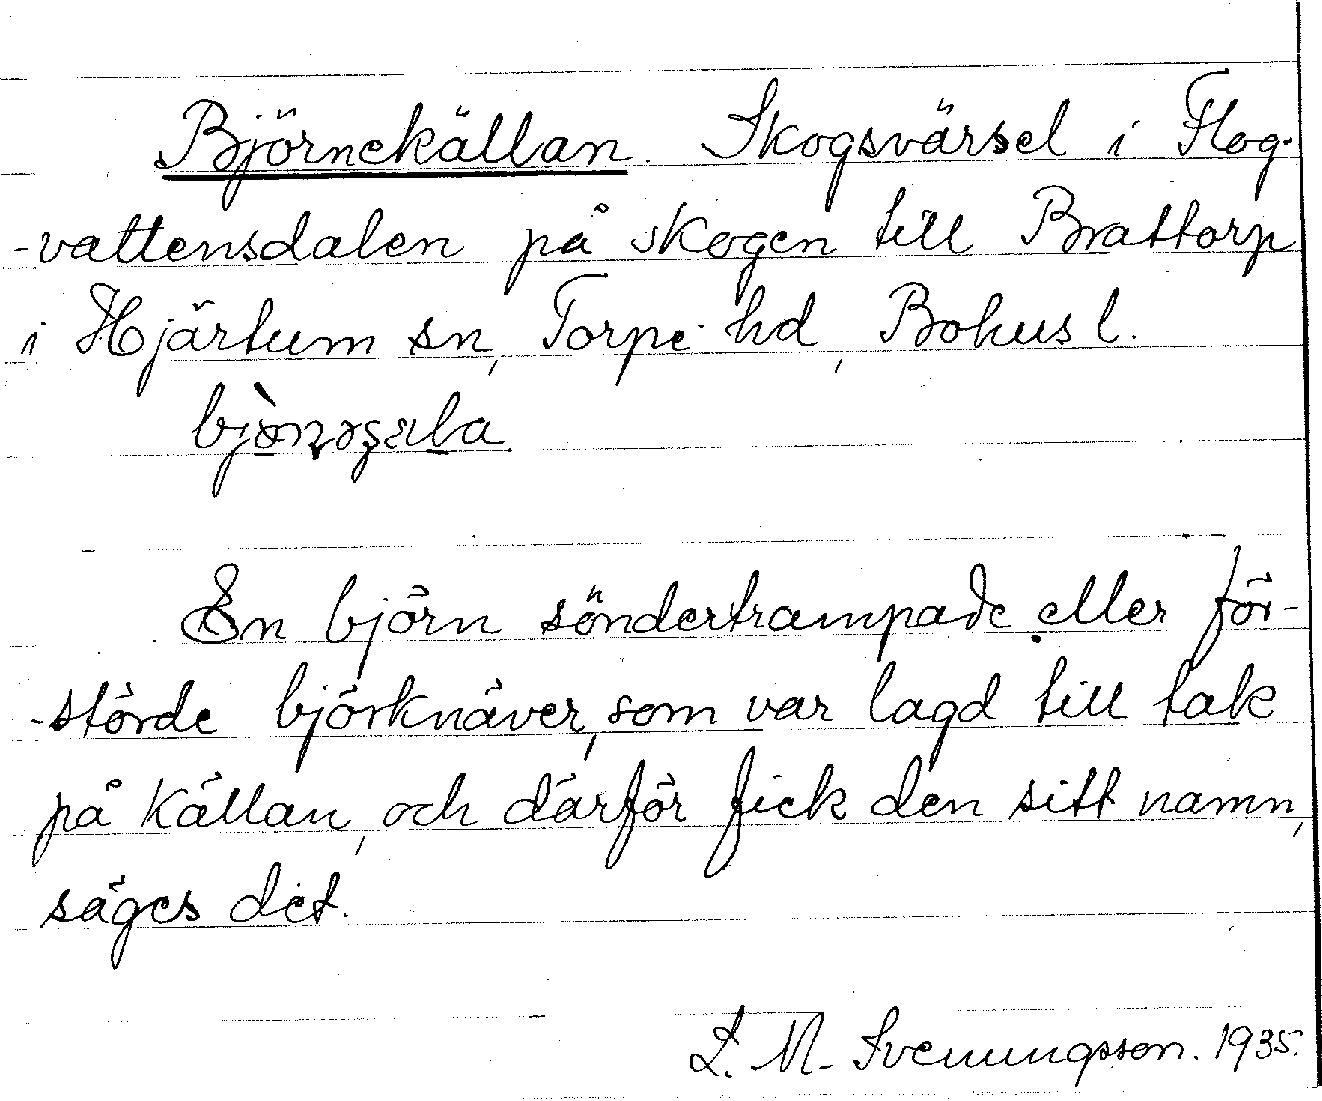 Björnekällan. Skogsvärsel i Flog-
-vattensdalen på skogen till Brattorp
i Hjärtum sn, Torpe hd, Bohusl.
En björn söndertrampade eller för-
-störde björknäver, som var lagd till tak
på källan, och därför fick den sitt namn,
säges det.
L. M. Svenungsson. 1935.